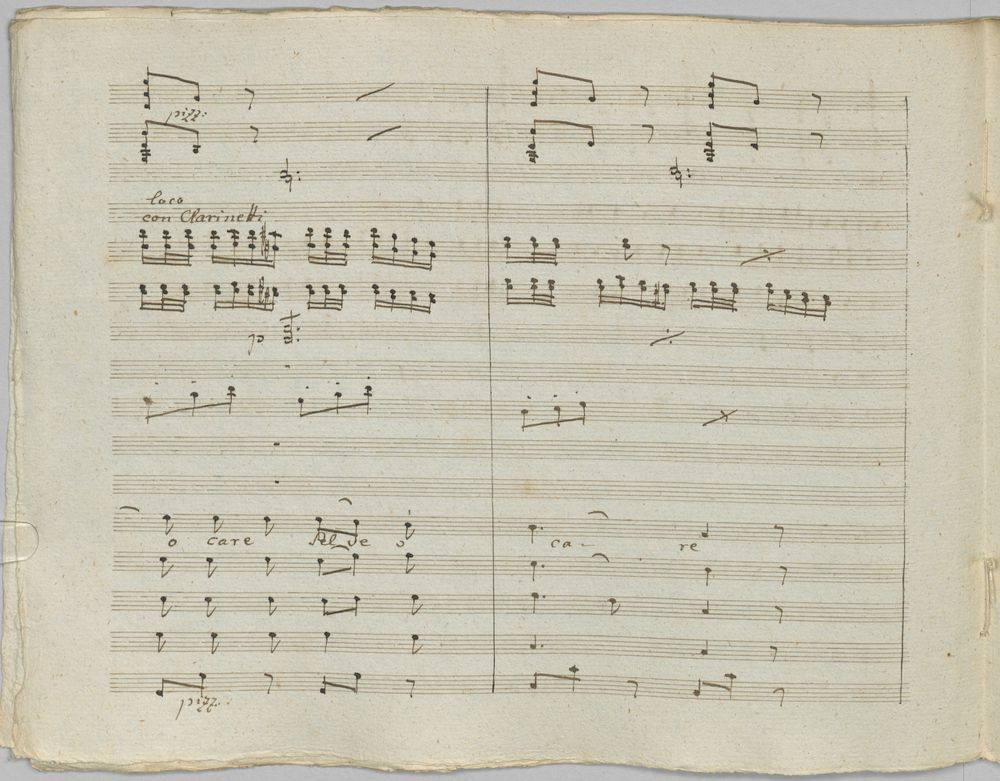 pizz:
loco
con Clarinetti
p
o care Sel ve o ca - re
pizz: